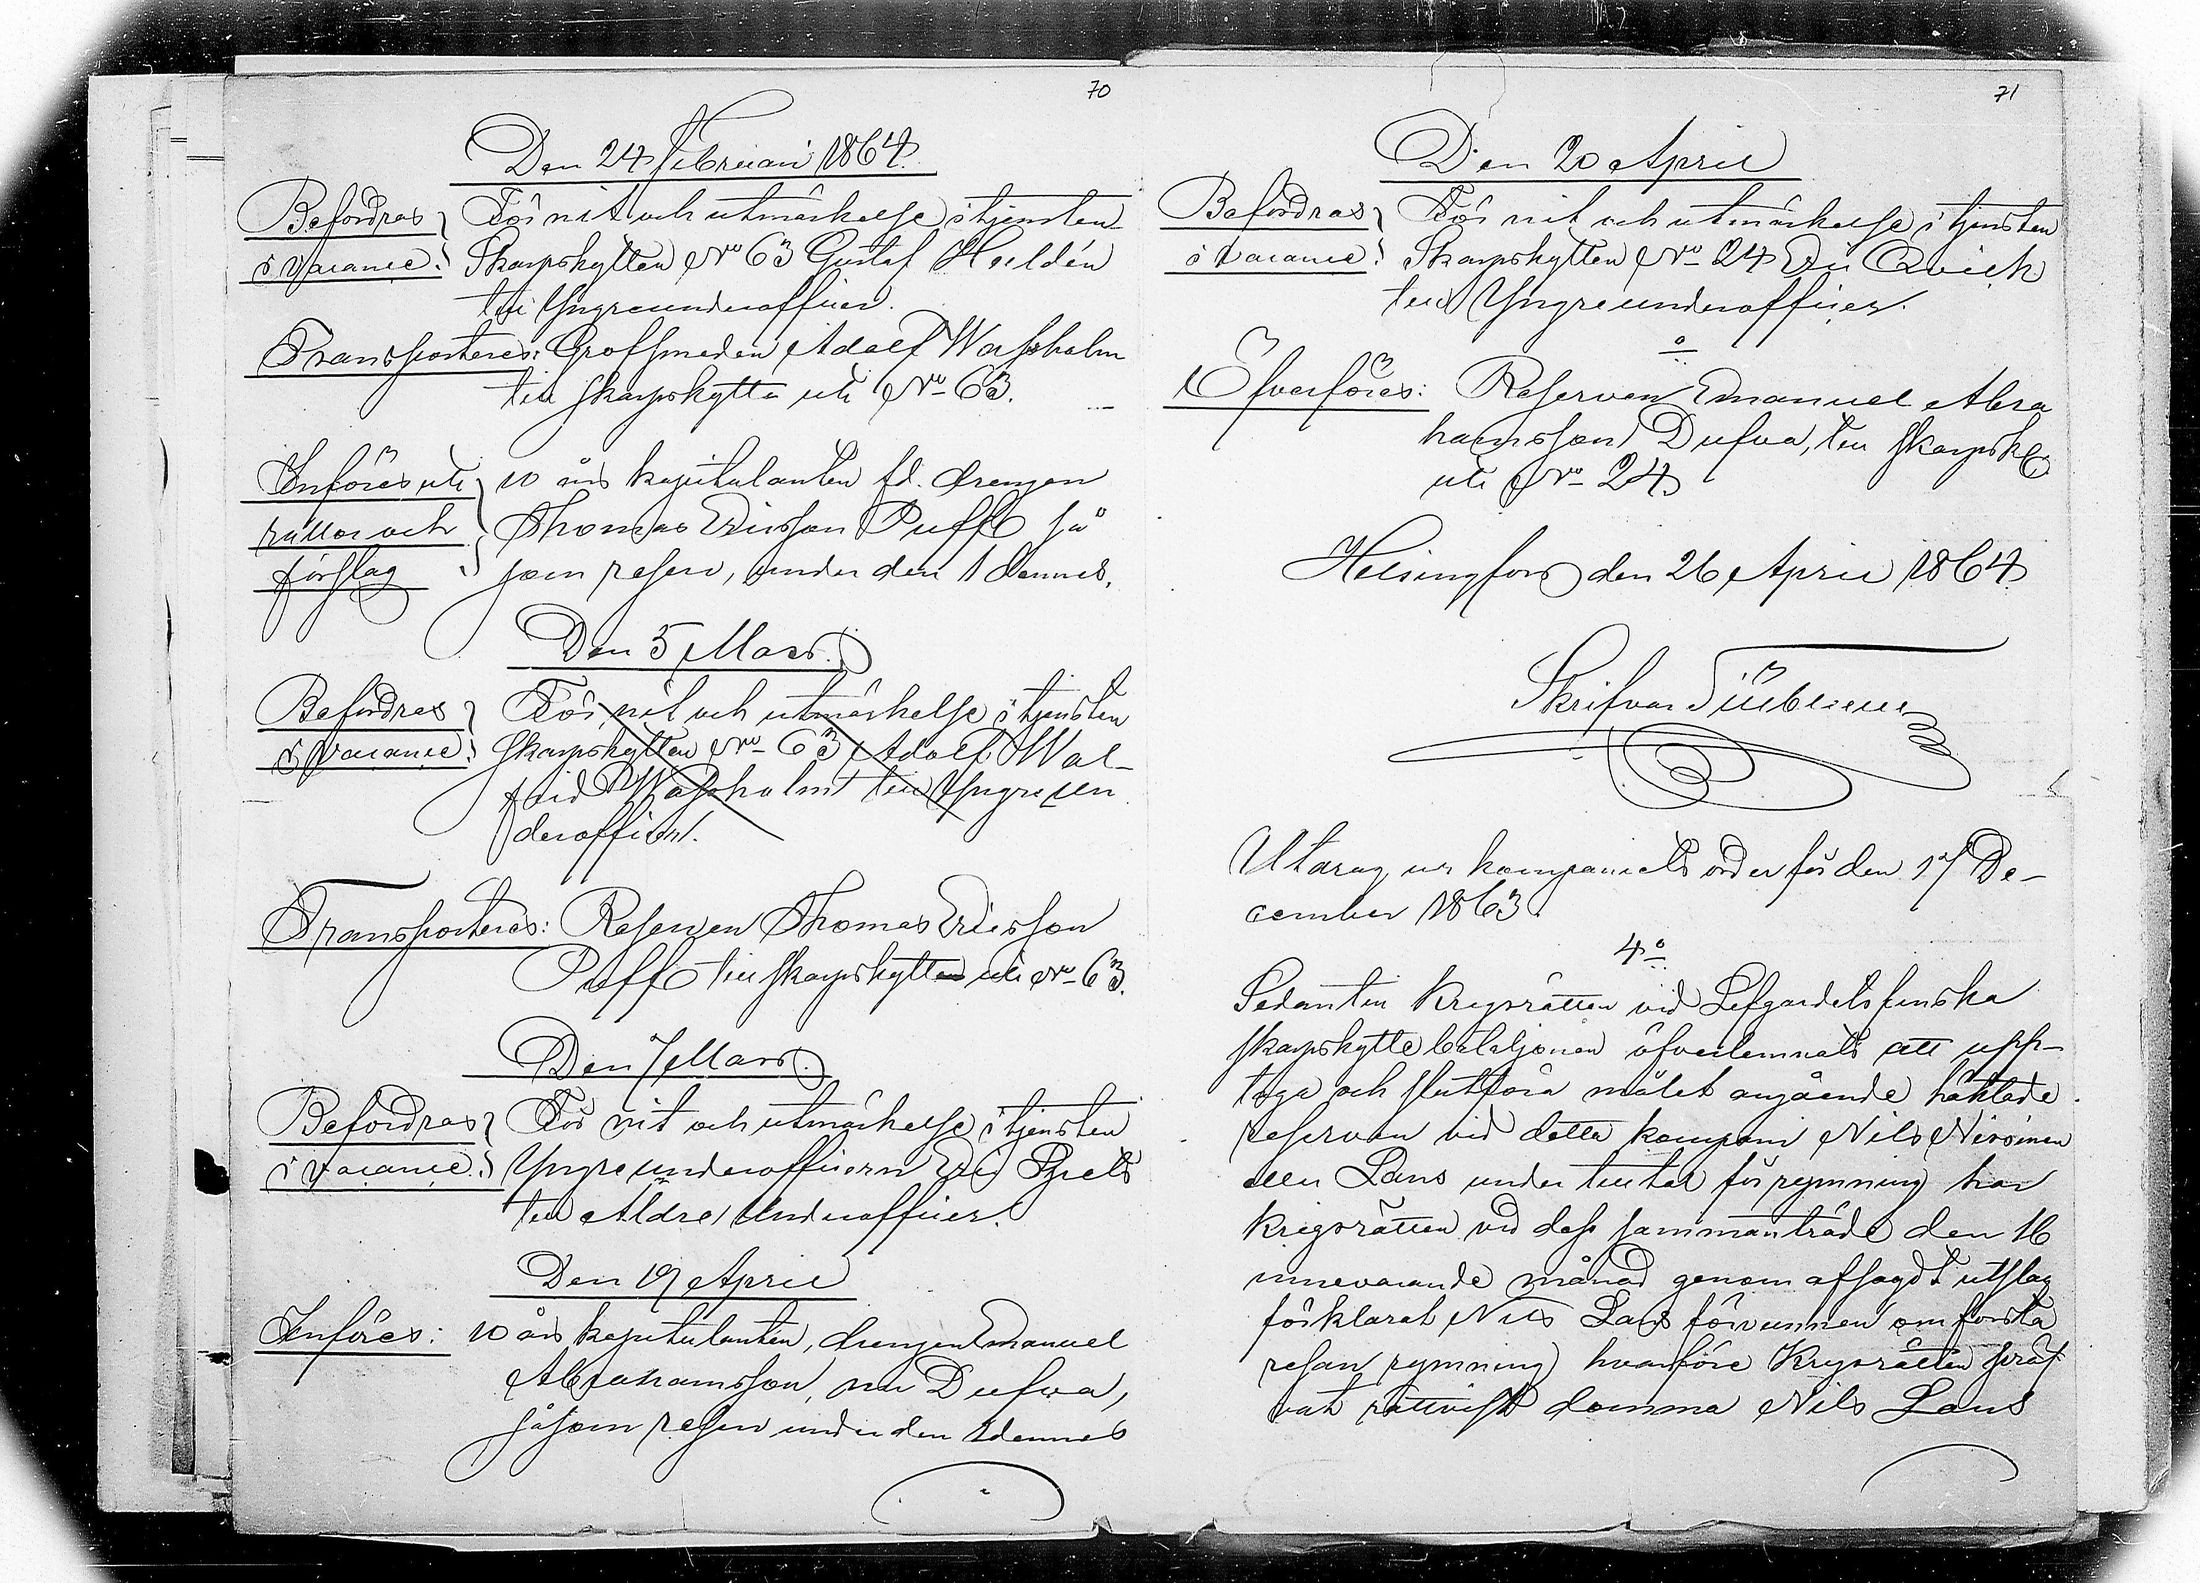 70
Den 24 Februari 1864.
Befordras För nit och utmärkelse i tjensten
i vacance: Skarpskytten No 63 Gustaf Heldén
till Yngreunderofficer.
Transporteres: Grofsmeden Adolf Wassholm
till skarpskytte uti No 63.
Införes uti 10 års kapitulanten fd. drengen
rullor och Thomas Ericsson Puff så
förslag som reserv, under den 1 dennes.
Den 5 Mars.
Befordras För nit och utmärkelse i tjensten
i vacance: skarpskytten No 63 Adolf Wal-
frid Wassholm till Yngre un
derofficer.
Transporteres: Reserven Thomas Ericsson
Puff till skarpskytten uti No 63.
Den 7 Mars.
Befordras För nit och utmärkelse i tjensten
i vacance: Yngreunderofficern Eric
till Äldre Underofficer.
Den 19 April
Införes: 10 års kapitulanten, drengen Emanuel
Abrahamsson, nu Dufva,
såsom reserv under den 1 dennes
71
Den 20 April
Befordras För nit och utmärkelse i tjensten
i vacance: Skarpskytten No 24 Eric Qvick
till Yngreunderofficer.
Öfverföres: Reserven Emanuel Abra
hamsson Dufva, till skarpsk
uti No 24
Helsingfors den 26 April 1864
Skrifvar
Utdrag ur kompaniets order för den 17 De-
cember 1863.
4o
Sedan till Krigsrätten vid Lifgardets finska
skarpskytte bataljonen öfverlemnats att upp-
taga och slutföra målet angående häktade
reserven vid detta kompani Nils
eller Lans under tilltal för rymning har
Krigsrätten vid dess sammanträde den 16
innevarande månad genom afsagdt utslag
förklarat Nils Lans förvunnen om första
resan rymning hvarföre Krigsrätten pröf
vat rättvist domma Nils Lans